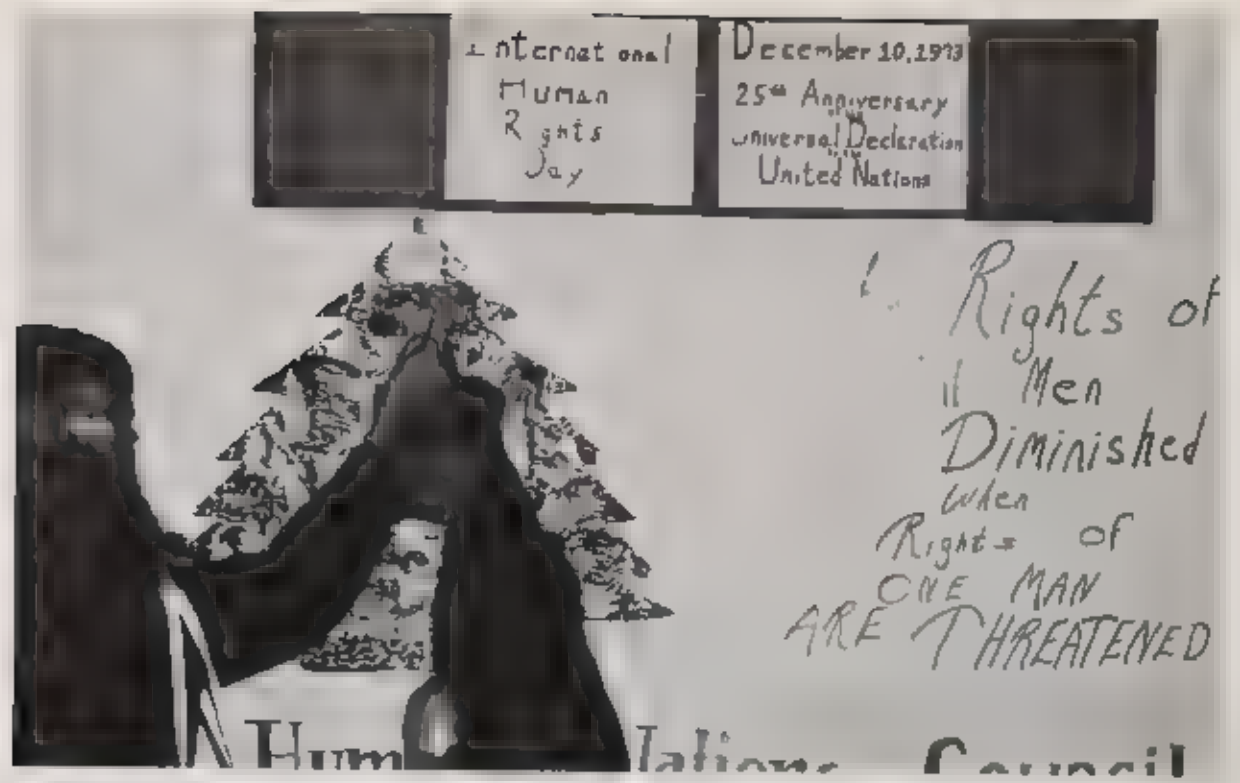 International
Human
Rights
Day
December 10, 1973
25th Anniversary
Universal Declaration
United Nations
Rights of
Men
Diminished
when
Rights of
ONE MAN
ARE THREATENED
Council